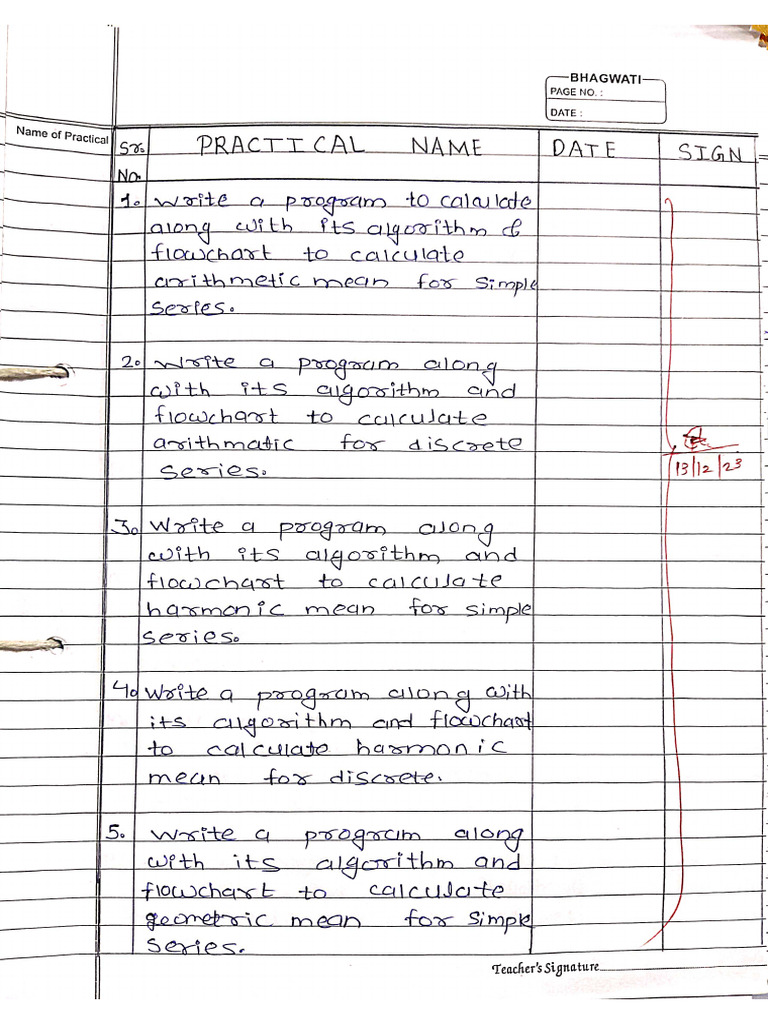 BHAGWATI
PAGE NO. :
DATE :
Name of Practical
Sr. No. PRACTICAL NAME DATE SIGN
1. Write a program to calculate
along with its algorithm &
flowchart to calculate
arithmetic mean for simple
series.
2. Write a program along
with its algorithm and
flowchart to calculate
arithmatic for discrete
series.
13/12/23
3. Write a program along
with its algorithm and
flowchart to calculate
harmonic mean for simple
series.
4. Write a program along with
its algorithm and flowchart
to calculate harmonic
mean for discrete.
5. Write a program along
with its algorithm and
flowchart to calculate
geometric mean for simple
series.
Teacher's Signature